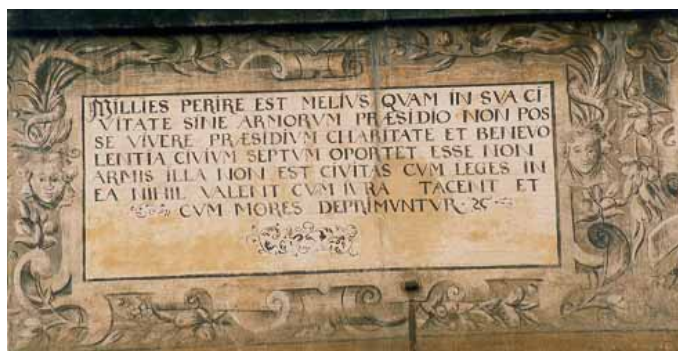 MILLIES PERIRE EST MELIVS QVAM IN SVA CI
VITATE SINE ARMORVM PRÆSIDIO NON POS
SE VIVERE PRÆSIDIVM CHARITATE ET BENEVO
LENTIA CIVIVM SEPTVM OPORTET ESSE NON
ARMIS ILLA NON EST CIVITAS CVM LEGES IN
EA NIHIL VALENT CVM IVRA TACENT ET
CVM MORES DEPRIMVNTVR